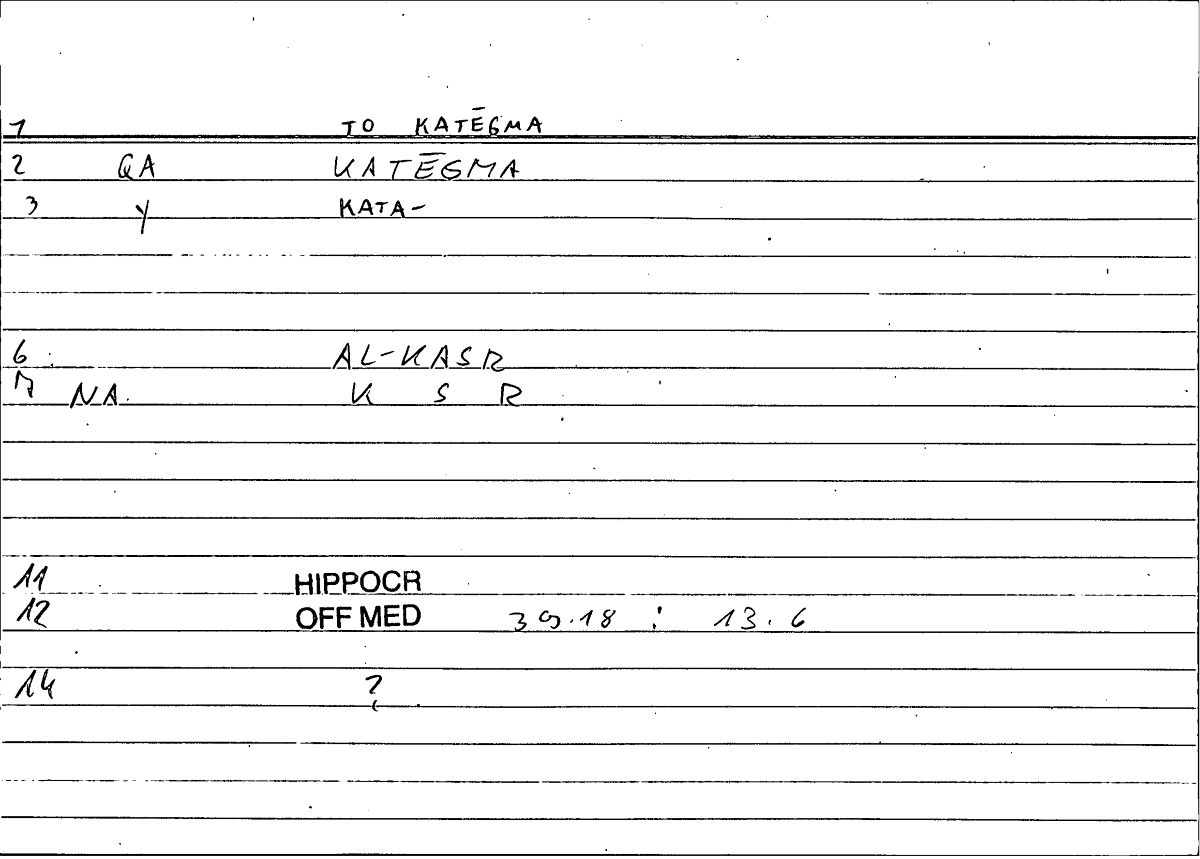 1 TO KATĒGMA
2 QA KATĒGMA
3 Y KATA-
6 AL-KASR
7 NA. K S R
11 HIPPOCR
12 OFF MED 39.18 : 13.6
14 ?